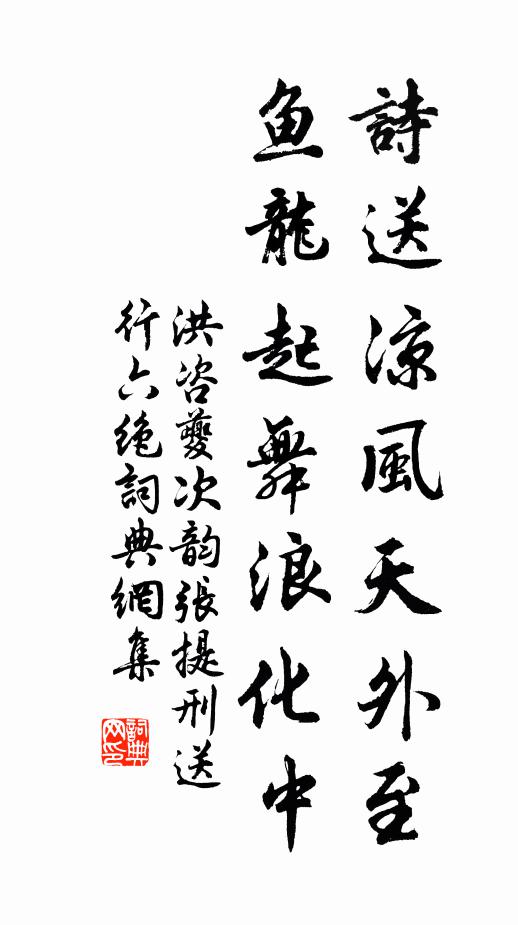 詩送涼風天外至
鱼龍起舞浪化中
洪咨夔次韵張提刑送
行六绝詞典網集
詞典
网印